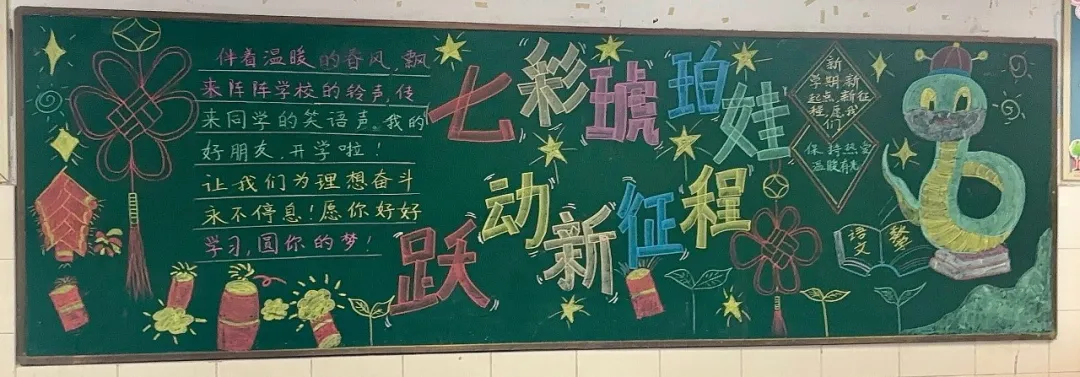 伴着温暖的春风,飘
来阵阵学校的铃声,传
来同学的笑语声,我的
好朋友,开学啦!
让我们为理想奋斗
永不停息!愿你好好
学习,圆你的梦!
七彩琥珀娃
跃动新征程
新
学期新
起点,新征
程,愿我
们
保持热爱
温暖有光
语文
数学